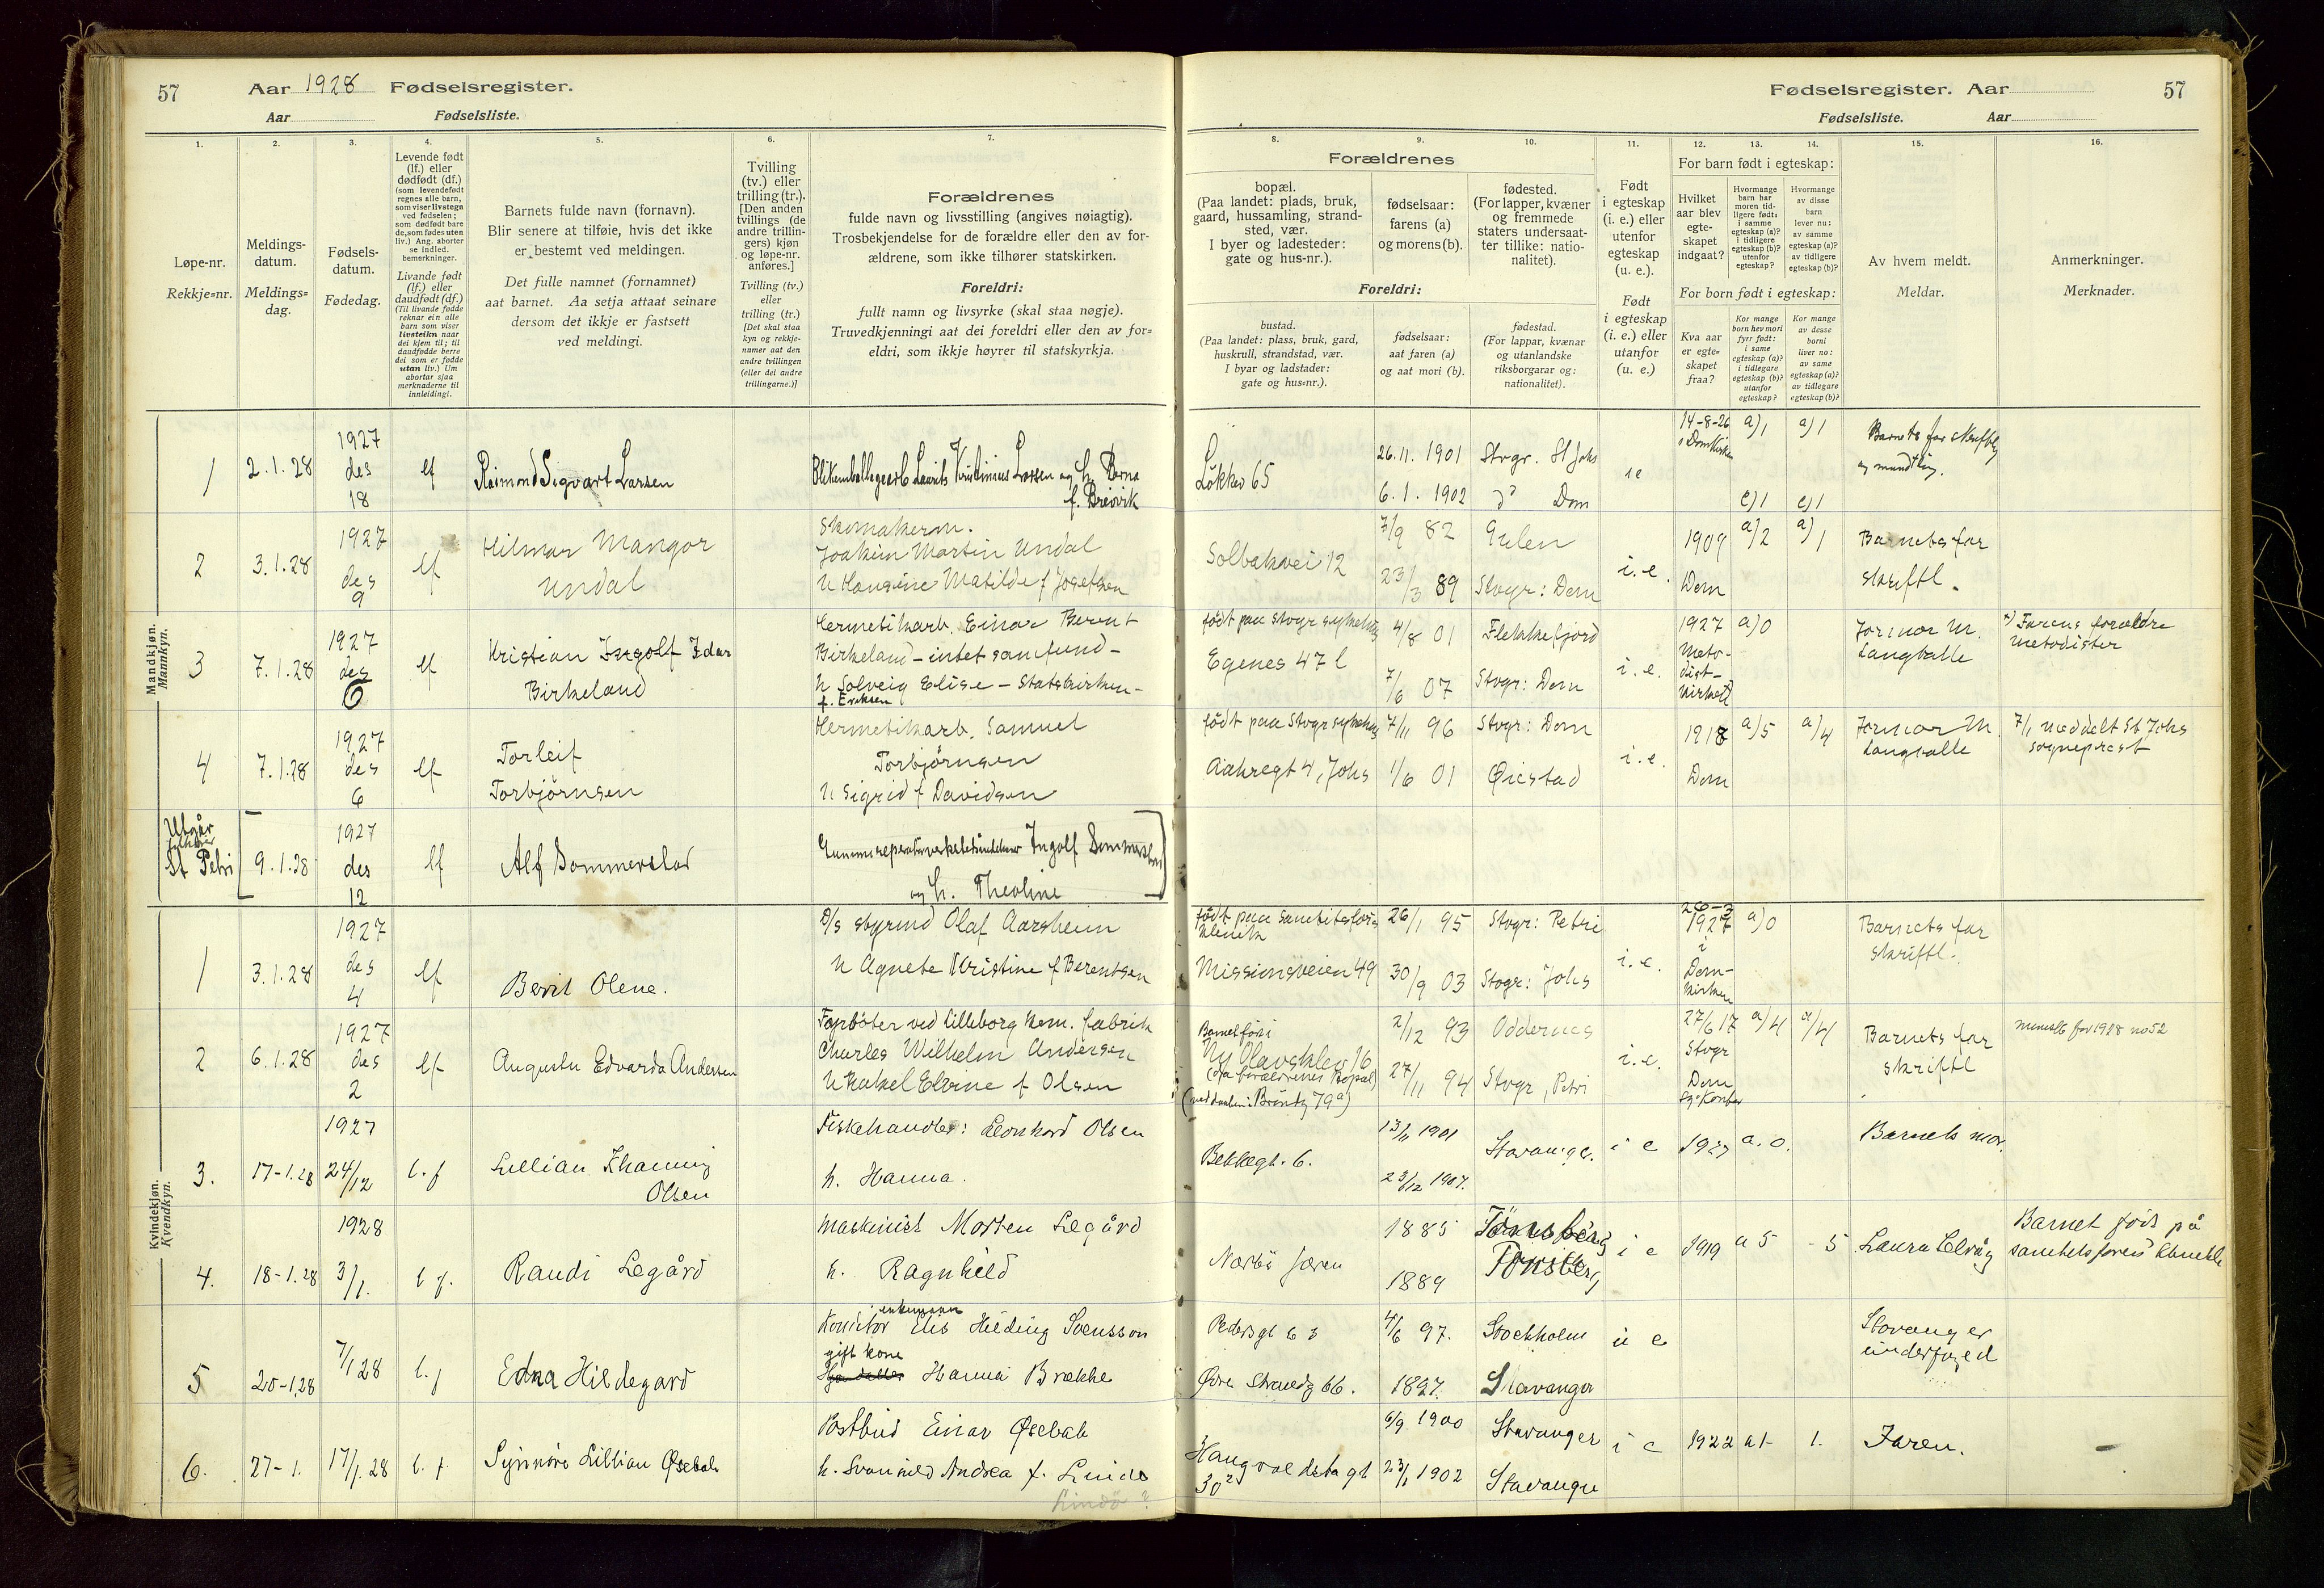 57
Aar 1928 Fødselsregister.
Aar
Fødselsliste.
1.
2.
3.
4.
5.
6.
7.
Løpe-nr.
Rekkje=nr.
Meldings-
datum.
Meldings=
dag.
Fødsels-
datum.
Fødedag.
Levende født
(lf.) eller
dødfødt (df.)
(som levendefødt
regnes alle barn,
som viser livstegn
ved fødselen;
som dødfødt bare
de, som fødes uten
liv.) Ang. aborter
se indled.
bemerkninger.
Livande født
(lf.) eller
daudfødt (df.)
(Til livande fødde
reknar ein alle
barn som viser
livsteikn naar
dei kjem til; til
daudfødde berre
dei som er fødde
utan liv.) Um
abortar sjaa
merknaderne til
innleidingi.
Barnets fulde navn (fornavn).
Blir senere at tilføie, hvis det ikke
er bestemt ved meldingen.
Det fulle namnet (fornamnet)
aat barnet. Aa setja attaat seinare
dersom det ikkje er fastsett
ved meldingi.
Tvilling
(tv.) eller
trilling (tr.).
[Den anden
tvillings (de
andre trillin-
gers) kjøn
og løpe-nr.
anføres.]
Tvilling (tv.)
eller
trilling (tr.)
[Det skal staa
kyn og rekkje-
numer aat den
andre tvillingen
(eller dei andre
trillingarne.)]
Forældrenes
fulde navn og livsstilling (angives nøiagtig).
Trosbekjendelse for de forældre eller den av for-
ældrene, som ikke tilhører statskirken.
Foreldri:
fullt namn og livsyrke (skal staa nøgje).
Truvedkjenningi aat dei foreldri eller den av for=
eldri, som ikkje høyrer til statskyrkja.
Mandkjøn.
Mannkyn.
1
2.1.28
1927
des
18
lf
Raimond Sigvart Larsen
Blikemballagearb Laurits Kristinius Larsen og h. Berna
f. Breivik
2
3.1.28
1927
des
9
lf
Hilmar Mangor
Undal
Skomakerm.
Joakim Martin Undal
h Hansine Matilde f Josefsen
3
7.1.28
1927
des
6
lf
Kristian Ingolf Idar
Birkeland
Hermetikarb. Einar Bernt
Birkeland - intet samfund -
h Solveig Elise - Statskirken -
f. Eriksen
4
7.1.28
1927
des
6
lf
Torleif
Torbjörnsen
Hermetikarb. Samuel
Torbjörnsen
h Sigrid f Davidsen
Utgår
St Petri
9.1.28
1927
des
12
lf
Alf Sommerstad
Ingolf Sommerstad
og h. Theoline
Kvindekjøn.
Kvendkyn.
1
3.1.28
1927
des
4
lf
Berit Olene.
D/s styrmd Olaf Aarsheim
h Agnete Kristine f Berentsen
2
6.1.28
1927
des
2
lf
Augusta Edvarda Andersen
ved Lilleborg kem. fabrik
Charles Wilhelm Andersen
h Rakel Elvine f Olsen
3.
17-1.28
1927
24/12
l.f
Lillian Fhanny
Olsen
Fiskehandler: Leonhard Olsen
h. Hanna.
4.
18-1.28
1928
3/1.
l f.
Randi Legård
Maskinist Morten Legård
h. Ragnhild
5
20-1.28
7/1 28
l. f
Edna Hildegard
enkemann
Konditor Elis Hilding Svensson
gift kone
Hanna Brekke
6.
27-1.
17/1.28
l. f
Synnöve Lillian Øsebak
Postbud Einar Øsebak
h. Svanhild Andrea f. Linde
Lindö ?
57
Fødselsregister. Aar
Fødselsliste.
Aar
8.
9.
10.
11.
12.
13.
14.
15.
16.
Forældrenes
bopæl.
(Paa landet: plads, bruk,
gaard, hussamling, strand-
sted, vær.
I byer og ladesteder:
gate og hus-nr.).
fødselsaar:
farens (a)
og morens (b).
fødested.
(For lapper, kvæner
og fremmede
staters undersaat-
ter tillike: natio-
nalitet).
Foreldri:
bustad.
(Paa landet: plass, bruk, gard,
huskrull, strandstad, vær.
I byar og ladstader:
gate og hus=nr.).
fødselsaar:
aat faren (a)
og aat mori (b).
fødestad.
(For lappar, kvænar
og utanlandske
riksborgarar og:
nationalitet).
Født
i egteskap
(i. e.) eller
utenfor
egteskap
(u. e.).
Født
i egteskap
(i. e.) eller
utanfor
(u. e.)
For barn født i egteskap:
Hvilket
aar blev
egte-
skapet
indgaat?
Hvormange
barn har
moren tid-
ligere født:
i samme
egteskap (a)?
i tidligere
egteskap (b)?
utenfor
egteskap?
Hvormange
av disse
barn
lever nu:
av samme
egteskap (a)?
av tidligere
egteskap (b)?
For born født i egteskap:
Kva aar
er egte=
skapet
fraa?
Kor mange
born hev mori
fyrr født:
i same
egteskap (a)?
i tidlegare
egteskap (b)?
utanfor
egteskap?
Kor mange
av desse
borni
liver no:
av same
egteskap (a)?
av tidlegare
egteskap (b)?
Av hvem meldt.
Meldar.
Anmerkninger.
Merknader.
Løkkev 65
26.11. 1901
6.1. 1902
Stvgr. St Johs
do Dom
ie
14-8-26
i Domkirken
a) 1
c) 1
a) 1
c) 1
Barnets far skriftlig
og mundtlig.
Solbakvei 12
7/9 82
23/3 89
Gulen
Stvgr: Dom
i.e.
1909
Dom
a) 2
a) 1
Barnets far
skriftl.
født paa Stvgr sykehus
Egenes 47 l
4/8 01
7/6 07
Flekkefjord
Stvgr: Dom
i.e.
1927
Meto-
dist-
kirken
a) 0
Jormor M.
Langballe
*) Farens forældre
metodister
født paa Stvgr sykehus
Aakregt 4, Johs
7/11 96
1/6 01
Stvgr: Dom
Øiestad
i.e.
1918
Dom
a) 5
a) 4
Jormor M.
Langballe
7/1 meddelt St Johs
sogneprest
født paa Sanitetsfor
klinik
Missionsveien 49
26/1 95
30/9 03
Stvgr: Petri
Stvgr: Johs
i.e.
26-3
1927
i
Dom-
kirken
a) 0
Barnets far
skriftl.
Ny Olavsklev 16
(d.a. forældrenes Bopæl)
2/12 93
27/11 94
Oddernes
Stvgr, Petri
i.e.
27/6 17
Stvgr
Dom
a) 4
a) 4
Barnets far
skriftl
Bekkegt. 6.
13/11 1901
23/12 1907.
Stavanger.
i e
1927
a. o.
Barnets mor.
Nærbö Jæren
1885
1889
Tönsberg
Tönsberg
i e
1919
a 5
- 5
Barnet föd på
Pedersgt 63
Øvre Strandg 66.
4/6 97.
1897.
Stockholm
Stavanger
u e
Stavanger
Haugvaldstagt
30²
6/9 1900
23/1 1902
Stavanger
Stavanger
i e
1922
a 1-
1.
Faren.